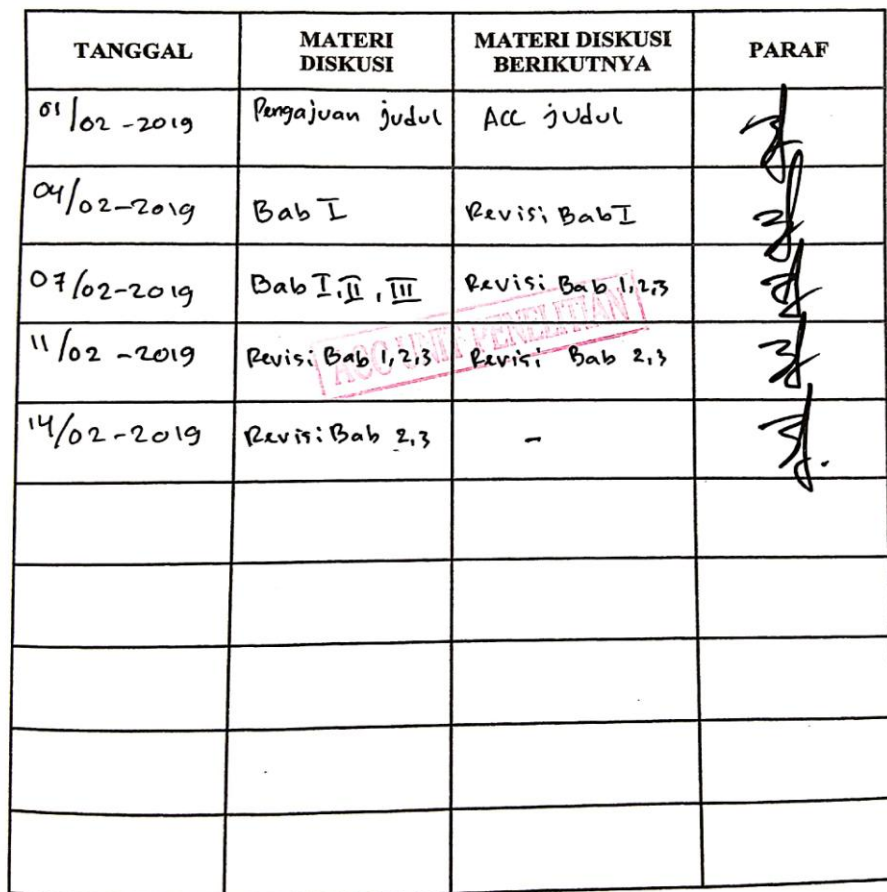 TANGGAL
MATERI
DISKUSI
MATERI DISKUSI
BERIKUTNYA
PARAF
01/02-2019 Pengajuan judul Acc judul
04/02-2019 Bab I Revisi Bab I
07/02-2019 Bab I, II, III Revisi Bab 1,2,3
ACC UNIT PENELITIAN
11/02-2019 Revisi Bab 1,2,3 Revisi Bab 2,3
14/02-2019 Revisi Bab 2,3 -